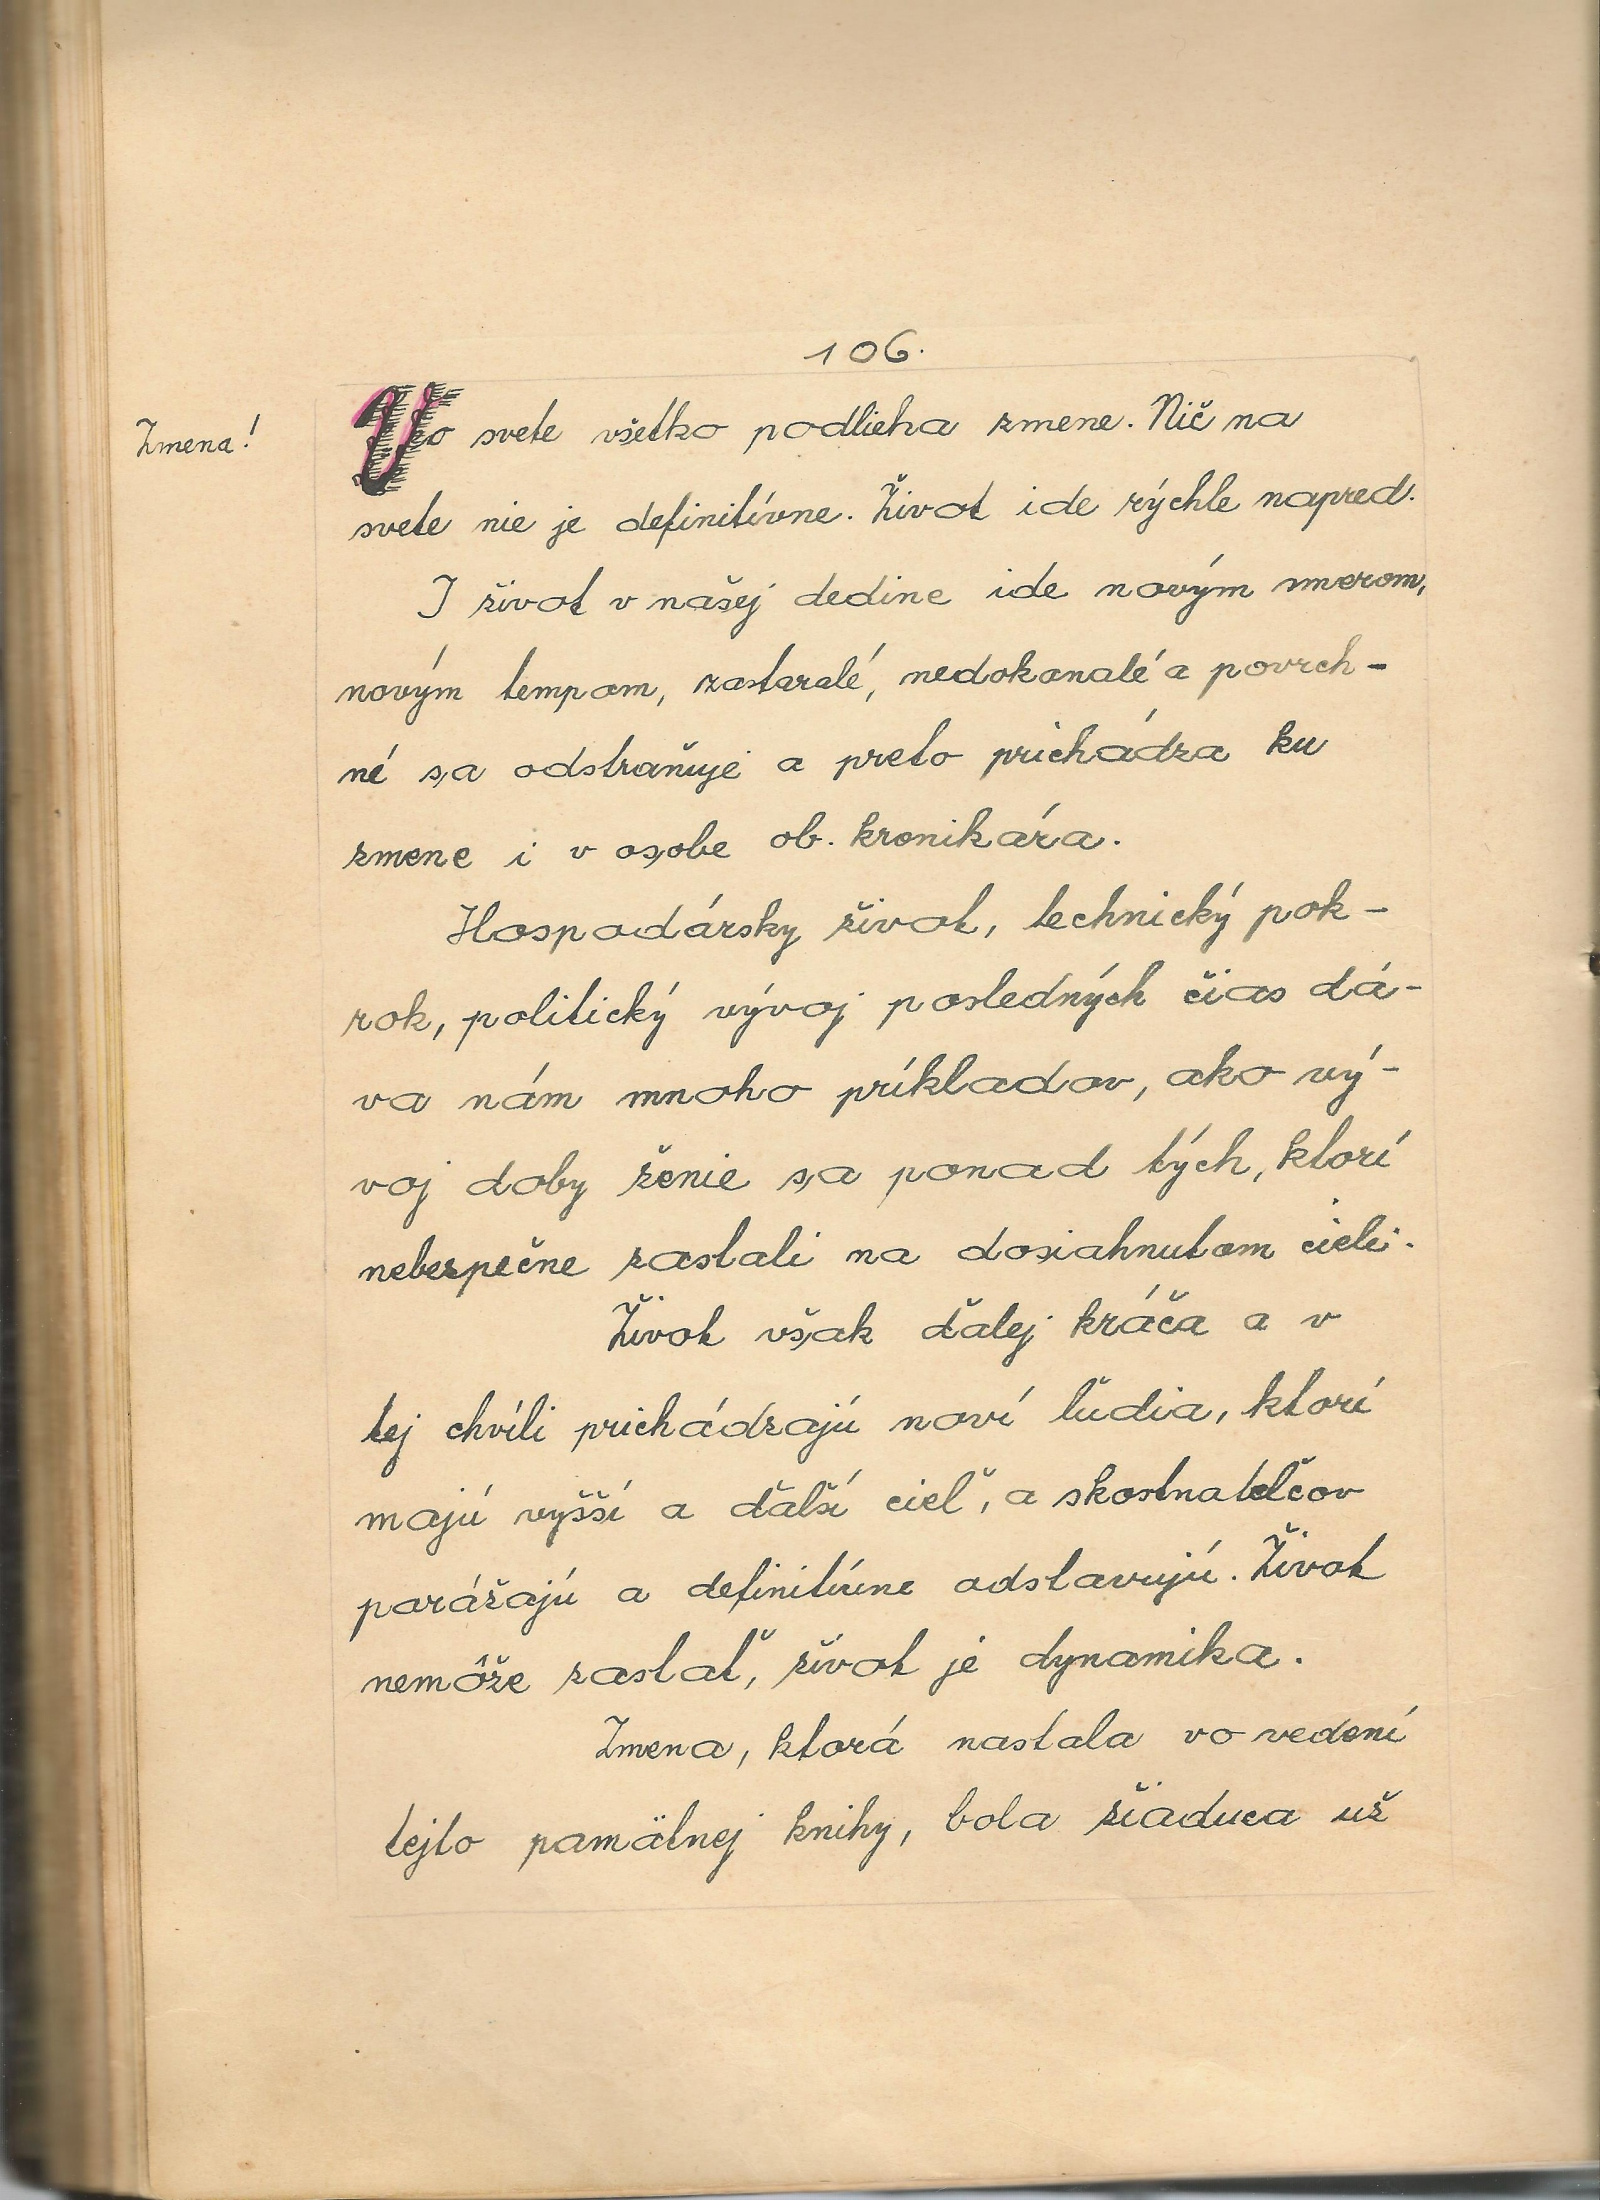 106.
Zmena!
Vo svete všetko podlieha zmene. Nič na
svete nie je definitívne. Život ide rýchle napred.
I život v našej dedine ide novým smerom,
novým tempom, zastaralé, nedokonalé a povrch-
né sa odstraňuje a preto prichádza ku
zmene i v osobe ob. kronikára.
Hospodársky život, technický pok-
rok, politický vývoj posledných čias dá-
va nám mnoho príkladov, ako vý-
voj doby ženie sa ponad tých, ktorí
nebezpečne zastali na dosiahnutom cieli.
Život však ďalej kráča a v
tej chvíli prichádzajú noví ľudia, ktorí
majú vyšší a ďalší cieľ, a skostnatelčov
porážajú a definitívne odstavujú. Život
nemôže zastať, život je dynamika.
Zmena, ktorá nastala vo vedení
tejto pamätnej knihy, bola žiaduca už